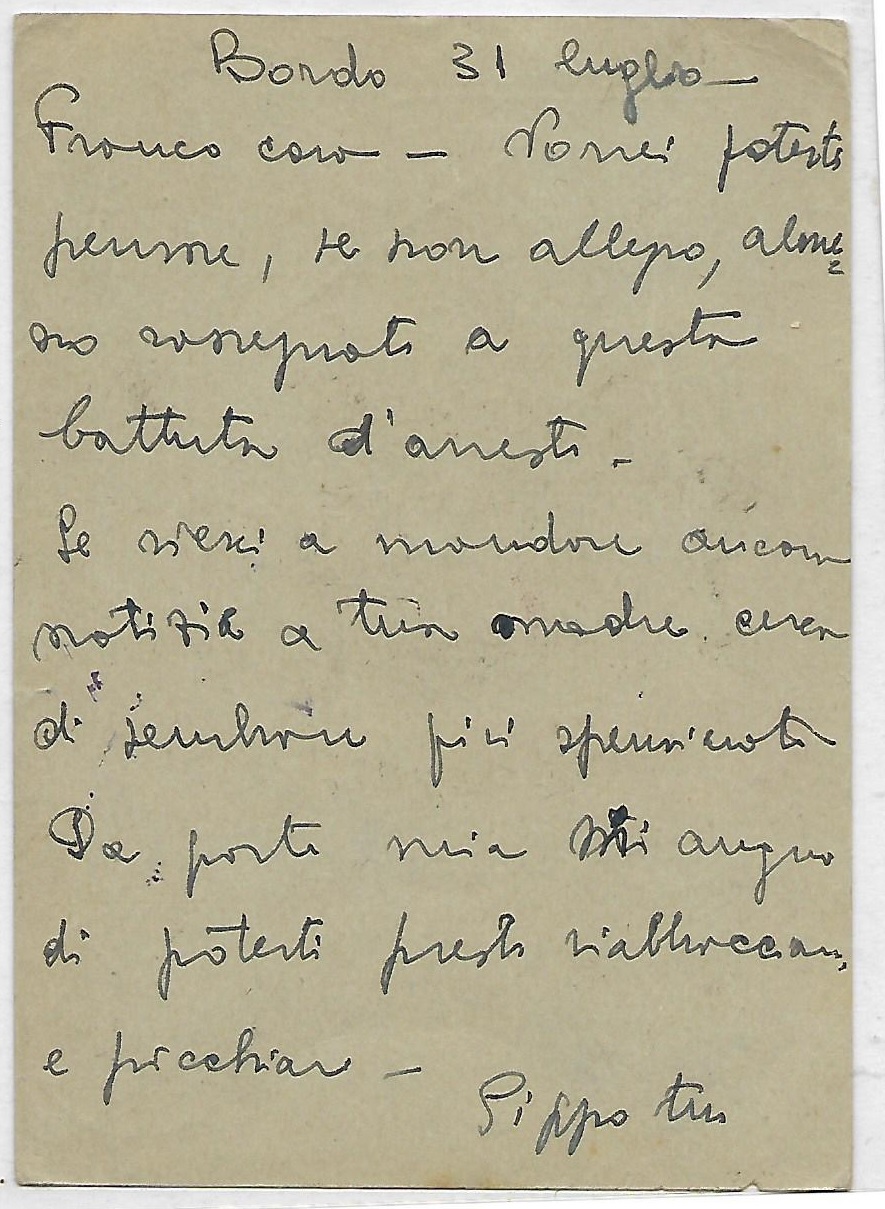 Bordo 31 luglio —
Franco caro — Vorrei poterti
pensare, se non allegro, alme
no rassegnato a questa
battuta d'arresto —
Se riesci a mandare ancora
notizie a tua madre cerca
di sembrare più spensierato
Da parte mia mi auguro
di poterti presto riabbracciare,
e picchiare —
Pippo tuo